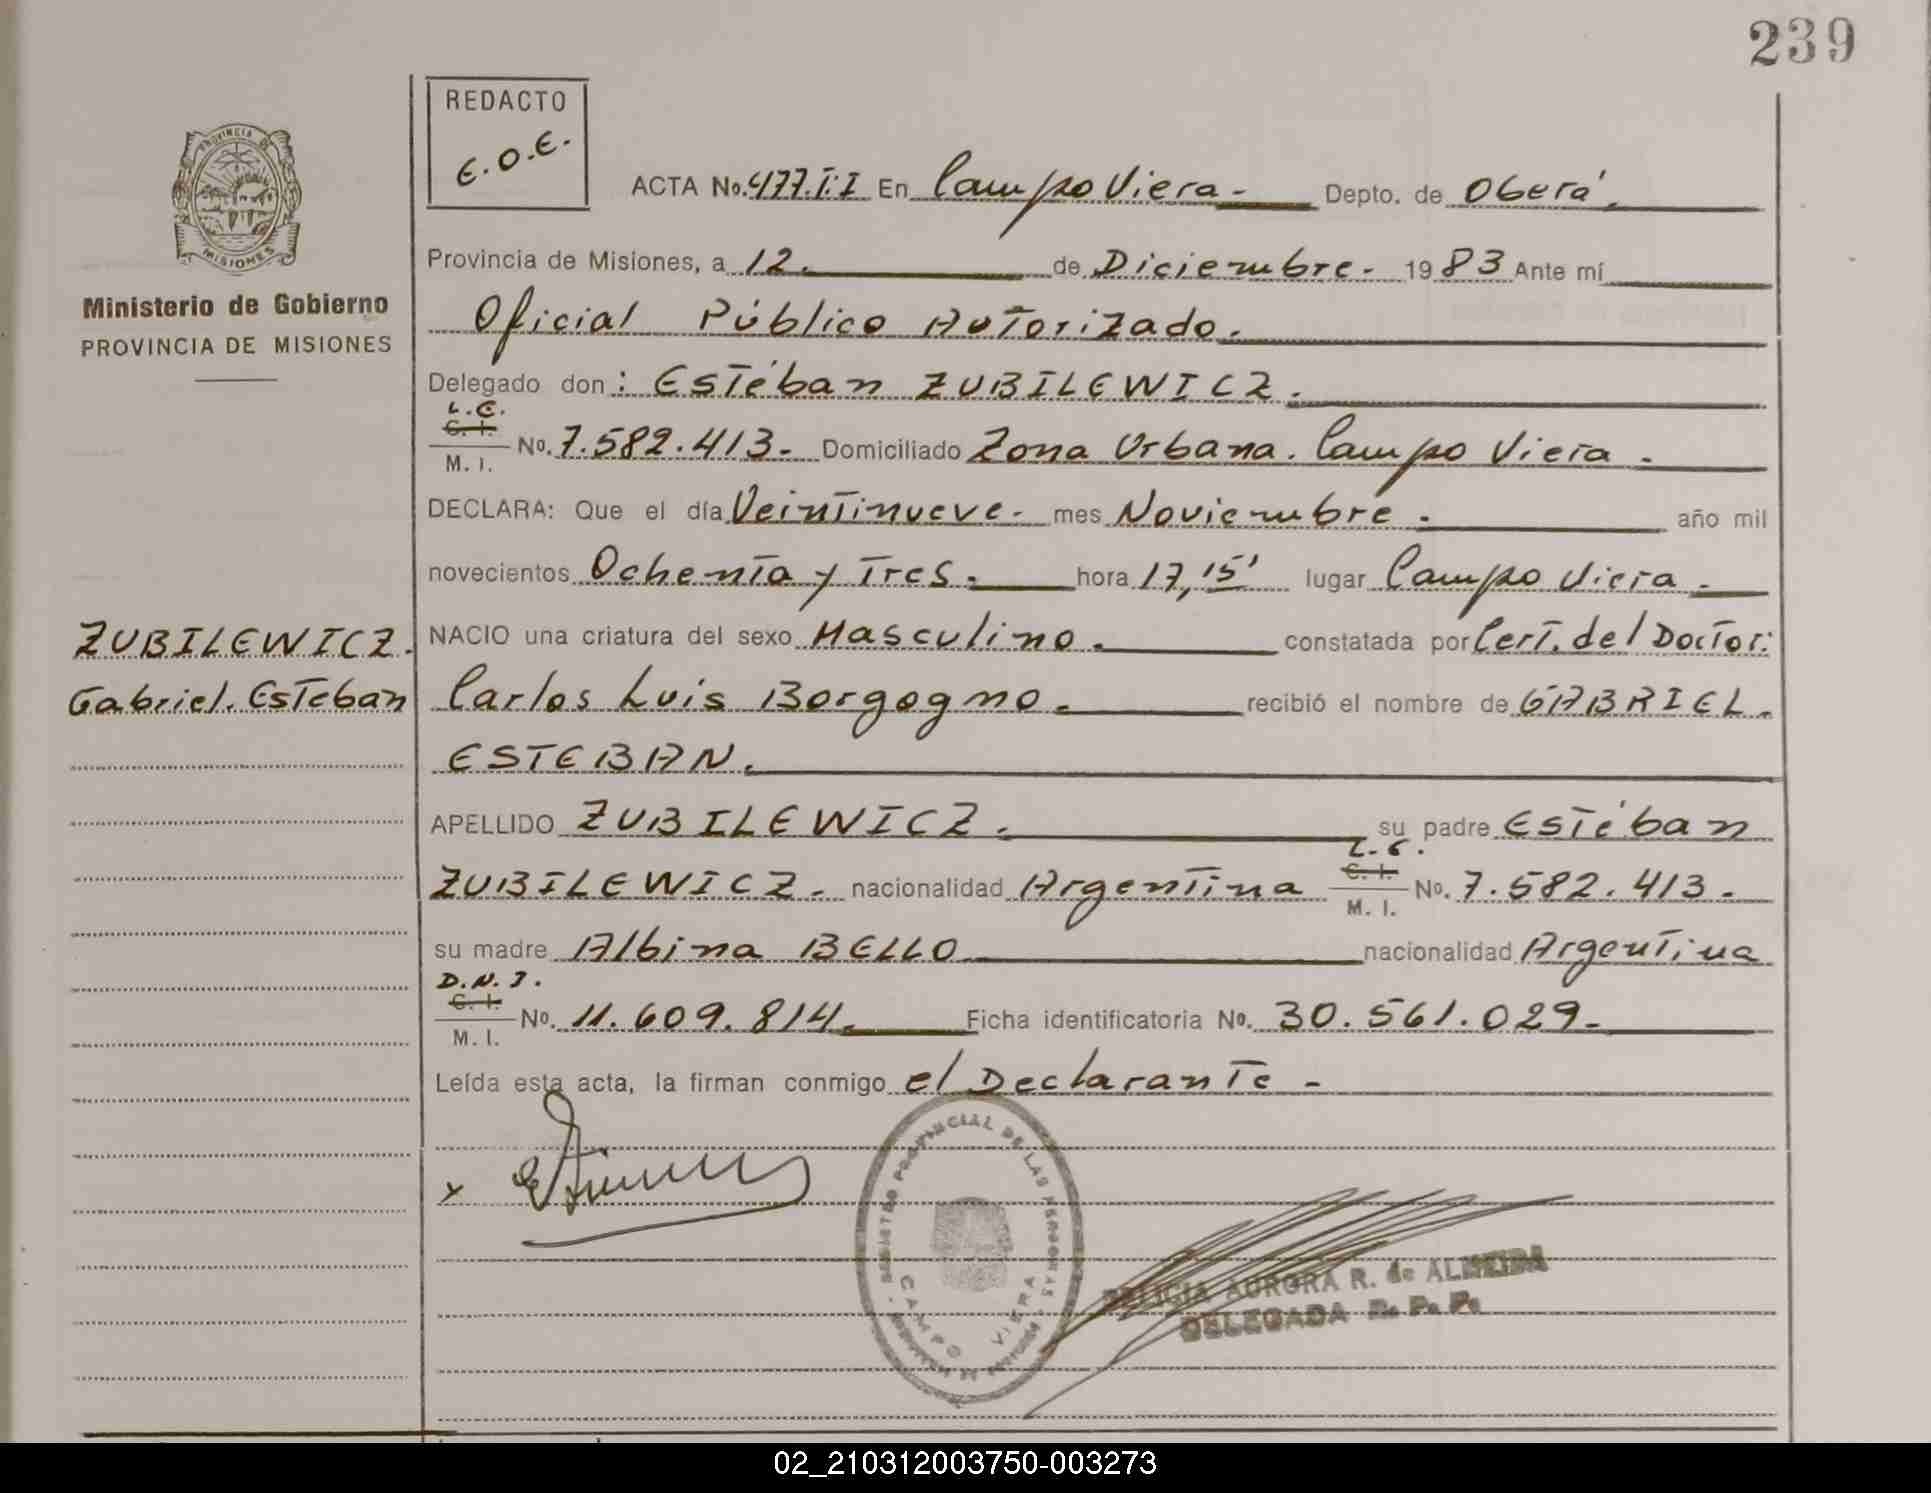 239
REDACTO
E.O.E.
PROVINCIA DE
MISIONES
Ministerio de Gobierno
PROVINCIA DE MISIONES
ACTA No. 477.T:I En Campo Viera - Depto. de Oberá.
Provincia de Misiones, a 12. de Diciembre. - 1983 Ante mí
Oficial Público Autorizado.
Delegado don: Estéban ZUBILEWICZ.
L.E.
C. I.
M. I. No. 7.582.413.- Domiciliado Zona Urbana. Campo Viera.
DECLARA: Que el día Veintinueve.- mes Noviembre. año mil
novecientos Ochenta y Tres. hora 17,15' lugar Campo Viera.
ZUBILEWICZ.
Gabriel. Esteban
NACIO una criatura del sexo Masculino. constatada por Cert. del Doctor:
Carlos Luis Borgogno. recibió el nombre de GABRIEL.
ESTEBAN.
APELLIDO ZUBILEWICZ. su padre Estéban
ZUBILEWICZ. nacionalidad Argentina L.E. C. I. M. I. No. 7.582.413.
su madre Albina BELLO nacionalidad Argentina
D.N.I.
C. I.
M. I. No. 11.609.814. Ficha identificatoria No. 30.561.029.-
Leída esta acta, la firman conmigo el Declarante -
x
REGISTRO PROVINCIAL DE LAS PERSONAS
CAMPO VIERA
FELICIA AURORA R. de ALMEIDA
DELEGADA R. P. P.
02_210312003750-003273